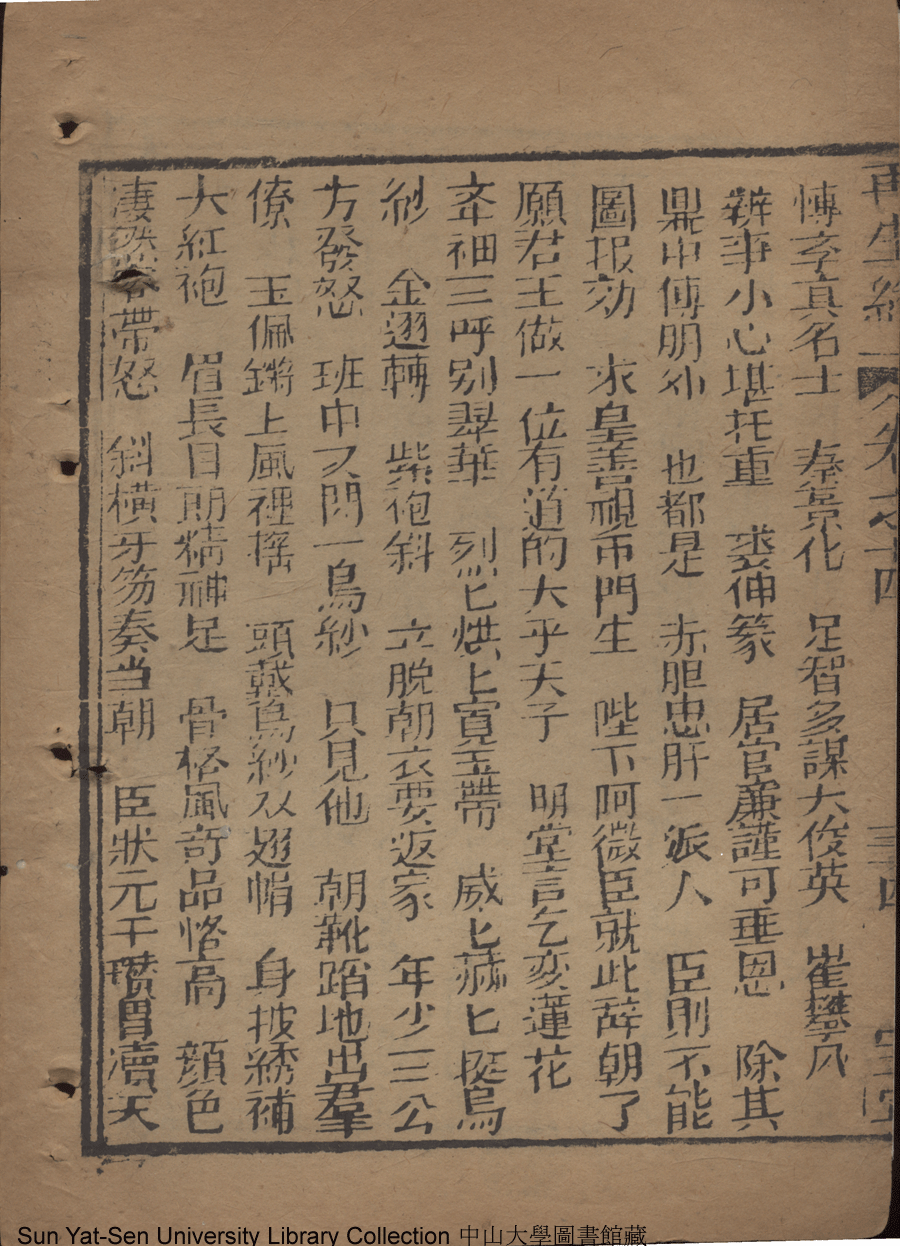 再生緣 卷之十四
慱孝真名士 秦景化 足智多謀大俊英 崔攀凡
辦事小心堪托重 裘伸篆 居官廉謹可垂恩 除其
鼎甲傅明外 也都是 赤胆忠肝一派人 臣則不能
圖报効 求皇善視帀門生 陛下阿微臣就此辞朝了
願君王做一位有道的大乎天子 明堂言乞变蓮花
牵袖三呼别翠華 烈匕烘上寛玉帶 威匕蕩匕挺烏
紗 金翅轉 紫袍斜 立脫朝衣要返家 年少三公
方發怒 班中又閃一烏紗 只見他 朝靴踏地出羣
僚 玉佩鏘上風裡摇 頭戴烏紗双翅帽 身披綉補
大紅袍 眉長目朗精神足 骨格風奇品格高 顔色
凄然帶怒 斜横牙笏奏当朝 臣狀元干瓒冒瀆天
Sun Yat-Sen University Library Collection 中山大學圖書館藏